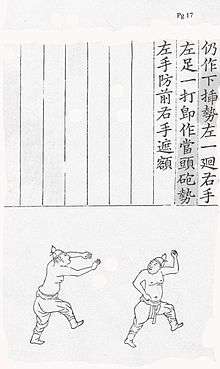 Pg 17
仍作下揷勢左一廻右手
左足一打卽作當頭砲勢
左手防前右手遮額